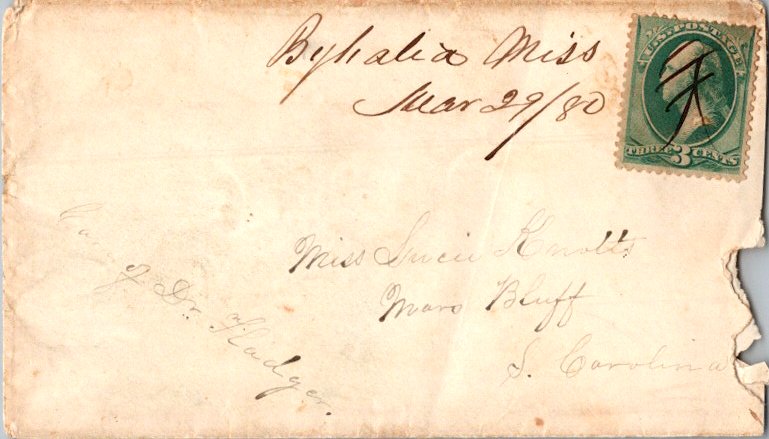 Byhalia Miss
Mar 29/80
U.S. POSTAGE
THREE 3 CENTS
Miss Lucie Knotts
Mars Bluff
S. Carolina
of Dr.